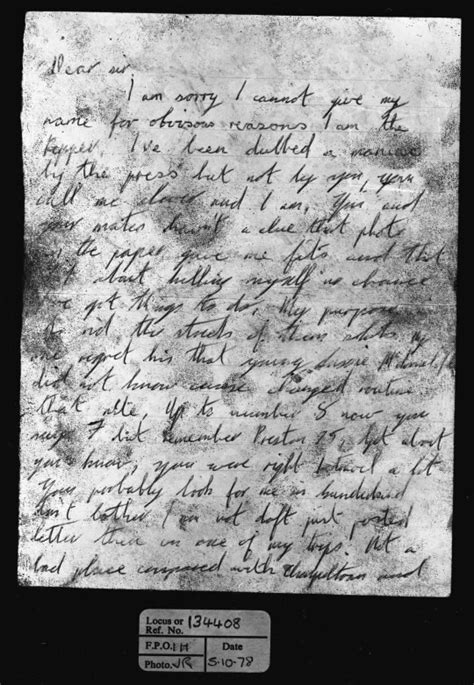 Dear sir,
I am sorry I cannot give my
name for obvisous reasons I am the
ripper. I've been dubbed a maniac
by the press but not by you, you
call me clever and I am. You and
your mates havent a clue that photo
in the paper gave me fits and that
bit about killing myself no chance
I've got things to do, My purpose
to rid the streets of them sluts. my
one regret his that young lassie Mcdonald
did not know cause changed routine
that nite, Up to number 8 now you
say 7 but remember Preston 75, Get about
you know, you were right I travel a lot
You probably look for me in Sunderland
don't bother I am not daft just posted
letter there on one of my trips. Not a
bad place compared with Chapeltown and
Locus or Ref. No. 134408
F.P.O. Date
Photo. JR 5-10-78